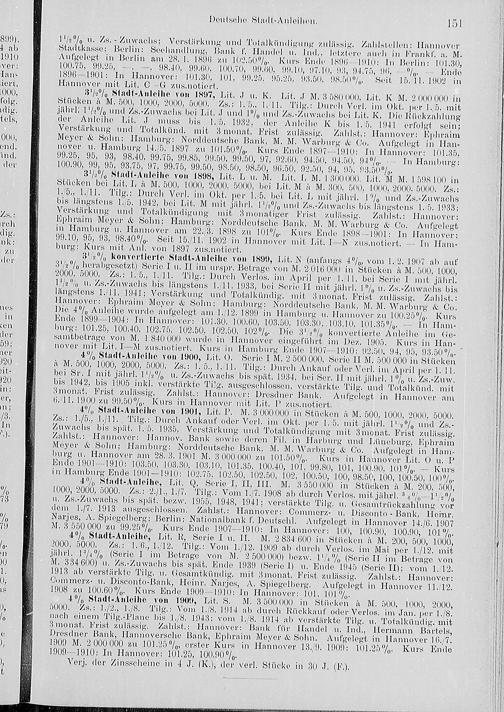 Deutsche Stadt-Anleihen. 151
1½% u. Zs.-Zuwachs; Verstärkung und Totalkündigung zulässig. Zahlstellen: Hannover
Stadtkasse; Berlin: Seehandlung, Bank f. Handel u. Ind., letztere auch in Frankf. a. M.
Aufgelegt in Berlin am 28./1. 1896 zu 102.50%. Kurs Ende 1896—1910: In Berlin: 101.30,
100.75, 99.25, —, —, 98.40, 99.60, 100.70, 99.60, 99.10, 97.10, 93, 94.75, 96, —%. — Ende
1896—1901: In Hannover: 101.30, 101, 99.25, 95.25, 93.50, 98.50%. Seit 15./11. 1902 in
Hannover mit Lit. C—G zus.notiert.
3½% Stadt-Anleihe von 1897, Lit. J u. K. Lit. J M. 3 580 000. Lit. K M. 2 000 000 in
Stücken à M. 500, 1000, 2000, 5000. Zs.: 1./5., 1./11. Tilg.: Durch Verl. im Okt. per 1./5. mit
jährl. 1½% und Zs.-Zuwachs bei Lit. J und 1% und Zs.-Zuwachs bei Lit. K. Die Rückzahlung
der Anleihe Lit. J muss bis 1./5. 1932, der Anleihe K bis 1./5. 1941 erfolgt sein;
Verstärkung und Totalkünd. mit 3 monat. Frist zulässig. Zahlst.: Hannover: Ephraim
Meyer & Sohn; Hamburg: Norddeutsche Bank, M. M. Warburg & Co. Aufgelegt in Hannover
u. Hamburg 14./5. 1897 zu 101.50%. Kurs Ende 1897—1910: In Hannover: 101.35,
99.25, 95, 93, 98.40, 99.75, 99.85, 99.50, 99.50, 97, 92.60, 94.50, 94.50, 94%. — In Hamburg:
100.90, 99, 95, 93.75, 97, 99.75, 99.50, 98.50, 98.50, 96.50, 92.50, 94, 95, 93.50%.
3½% Stadt-Anleihe von 1898, Lit. L u. M. Lit. L M. 1 300 000. Lit. M M. 1 598 100 in
Stücken bei Lit. L à M. 500, 1000, 2000, 5000, bei Lit. M à M. 300, 500, 1000, 2000, 5000. Zs.:
1./5., 1./11. Tilg.: Durch Verl. im Okt. per 1./5. bei Lit. L mit jährl. 1% und Zs.-Zuwachs
bis längstens 1./5. 1942, bei Lit. M mit jährl. 1½% und Zs.-Zuwachs bis längstens 1./5. 1933;
Verstärkung und Totalkündigung mit 3 monatiger Frist zulässig. Zahlst.: Hannover:
Ephraim Meyer & Sohn; Hamburg: Norddeutsche Bank, M. M. Warburg & Co. Aufgelegt
in Hamburg u. Hannover am 22./3. 1898 zu 101%. Kurs Ende 1898—1901: In Hannover:
99.10, 95, 93, 98.40%. Seit 15./11. 1902 in Hannover mit Lit. J—N zus.notiert. — In Hamburg:
Kurs mit Anl. von 1897 zus.notiert.
3½% konvertierte Stadt-Anleihe von 1899, Lit. N (anfangs 4%, vom 1./2. 1907 ab auf
3½% herabgesetzt) Serie I u. II im urspr. Betrage von M. 2 016 000 in Stücken à M. 500, 1000,
2000, 5000. Zs.: 1./5., 1./11. Tilg.: Durch Verlos. im April per 1./11. bei Serie I mit jährl.
1½% u. Zs.-Zuwachs bis längstens 1./11. 1933, bei Serie II mit jährl. 1% u. Zs.-Zuwachs bis
längstens 1./11. 1941; Verstärkung und Totalkündig. mit 3 monat. Frist zulässig. Zahlst.:
Hannover: Ephraim Meyer & Sohn; Hamburg: Norddeutsche Bank, M. M. Warburg & Co.
Die 4% Anleihe wurde aufgelegt am 1./12. 1899 in Hamburg u. Hannover zu 100.25%. Kurs
Ende 1899—1904: In Hannover: 101.30, 100.60, 103.50, 103.30, 103.10, 101.35%. — In Hamburg:
101.25, 100.40, 102.75, 102.50, 102.50, 102%. Die 3½% konvertierte Anleihe im Gesamtbetrage
von M. 1 840 000 wurde in Hannover eingeführt im Dez. 1905. Kurs in Hannover
mit Lit. I—M zusnotiert. Kurs in Hamburg Ende 1907—1910: 92.50, 94, 95, 93.50%.
4% Stadt-Anleihe von 1900, Lit. O. Serie I M. 2 500 000. Serie II M. 500 000 in Stücken
à M. 500, 1000, 2000, 5000. Zs.: 1./5., 1./11. Tilg.: Durch Ankauf oder Verl. im April per 1./11.
bei Ser. I mit jährl. 1½% u. Zs.-Zuwachs bis spät. 1934, bei Ser. II mit jährl. 1% u. Zs.-Zuw.
bis 1942, bis 1905 inkl. verstärkte Tilg. ausgeschlossen, verstärkte Tilg. und Totalkünd. mit
3 monat. Frist zulässig. Zahlst.: Hannover: Dresdner Bank. Aufgelegt in Hannover am
6./11. 1900 zu 99.50%. Kurs in Hannover mit Lit. P zus.notiert.
4% Stadt-Anleihe von 1901, Lit. P. M. 3 000 000 in Stücken à M. 500, 1000, 2000, 5000.
Zs.: 1./5., 1./11. Tilg.: Durch Ankauf oder Verl. im Okt. per 1./5. mit jährl. 1½% und Zs.-
Zuwachs bis spät. 1./5. 1935, Verstärkung und Totalkündigung mit 3 monat. Frist zulässig.
Zahlst.: Hannover: Hannov. Bank sowie deren Fil. in Harburg und Lüneburg, Ephraim
Meyer & Sohn; Hamburg: Norddeutsche Bank, M. M. Warburg & Co. Aufgelegt in Hamburg
u. Hannover am 28./3. 1901 M. 3 000 000 zu 101.50%. Kurs in Hannover Lit. O u. P
Ende 1901—1910: 103.50, 103.30, 103.10, 101.35, 100.40, 101, 99.80, 101, 100.90, 101%. — Kurs
in Hamburg Ende 1901—1910: 102.75, 102.50, 102.50, 102, 100.50, 100, 98.50, 100, 100.50, 100%.
4% Stadt-Anleihe, Lit. Q, Serie I, II, III. M. 3 550 000 in Stücken à M. 200, 500,
1000, 2000, 5000. Zs.: 2./1., 1./7. Tilg.: Vom 1./7. 1908 ab durch Verlos. mit jährl. ¾%—1½%
u. Zs.-Zuwachs bis spät. bezw. 1955, 1948, 1941; verstärkte Tilg. u. Gesamtrückzahlung vor
dem 1./7. 1913 ausgeschlossen. Zahlst.: Hannover: Commerz- u. Disconto-Bank, Heinr.
Narjes, A. Spiegelberg; Berlin: Nationalbank f. Deutschl. Aufgelegt in Hannover 14./6. 1907
M. 3 550 000 zu 99.25%. Kurs Ende 1907—1910: In Hannover: 100, 100.90, 100.90, 101%.
4% Stadt-Anleihe, Lit. R, Serie I u. II. M. 2 834 600 in Stücken à M. 200, 500, 1000,
2000, 5000. Zs.: 1./6., 1./12. Tilg.: Vom 1./12. 1909 ab durch Verlos. im Mai per 1./12. mit
jährl. 1¼% (Serie I im Betrage von M. 2 500 000) bezw. 1½% (Serie II im Betrage von
M. 334 600) u. Zs.-Zuwachs bis spät. Ende 1939 (Serie I) u. Ende 1945 (Serie II); vom 1./12.
1913 ab verstärkte Tilg. u. Gesamtkündig. mit 3 monat. Frist zulässig. Zahlst.: Hannover:
Commerz- u. Disconto-Bank, Heinr. Narjes, A. Spiegelberg. Aufgelegt in Hannover 11./12.
1908 zu 100.60%. Kurs Ende 1909—1910: In Hannover: 101, 101%.
4% Stadt-Anleihe von 1909, Lit. S. M. 3 500 000 in Stücken à M. 500, 1000, 2000,
5000. Zs.: 1./2., 1./8. Tilg.: Vom 1./8. 1914 ab durch Rückkauf oder Verlos. im Jan. per 1./8.
nach einem Tilg.-Plane bis 1./8. 1943; vom 1./8. 1914 ab verstärkte Tilg. u. Totalkündig. mit
3 monat. Frist zulässig. Zahlst.: Hannover: Bank für Handel u. Ind., Hermann Bartels,
Dresdner Bank, Hannoversche Bank, Ephraim Meyer & Sohn. Aufgelegt in Hannover 16./7.
1909 M. 2 000 000 zu 101.25%, erster Kurs in Hannover 13./9. 1909: 101.25%. Kurs Ende
1909—1910: In Hannover: 101.25, 100.90%.
Verj. der Zinsscheine in 4 J. (K.), der verl. Stücke in 30 J. (F.).